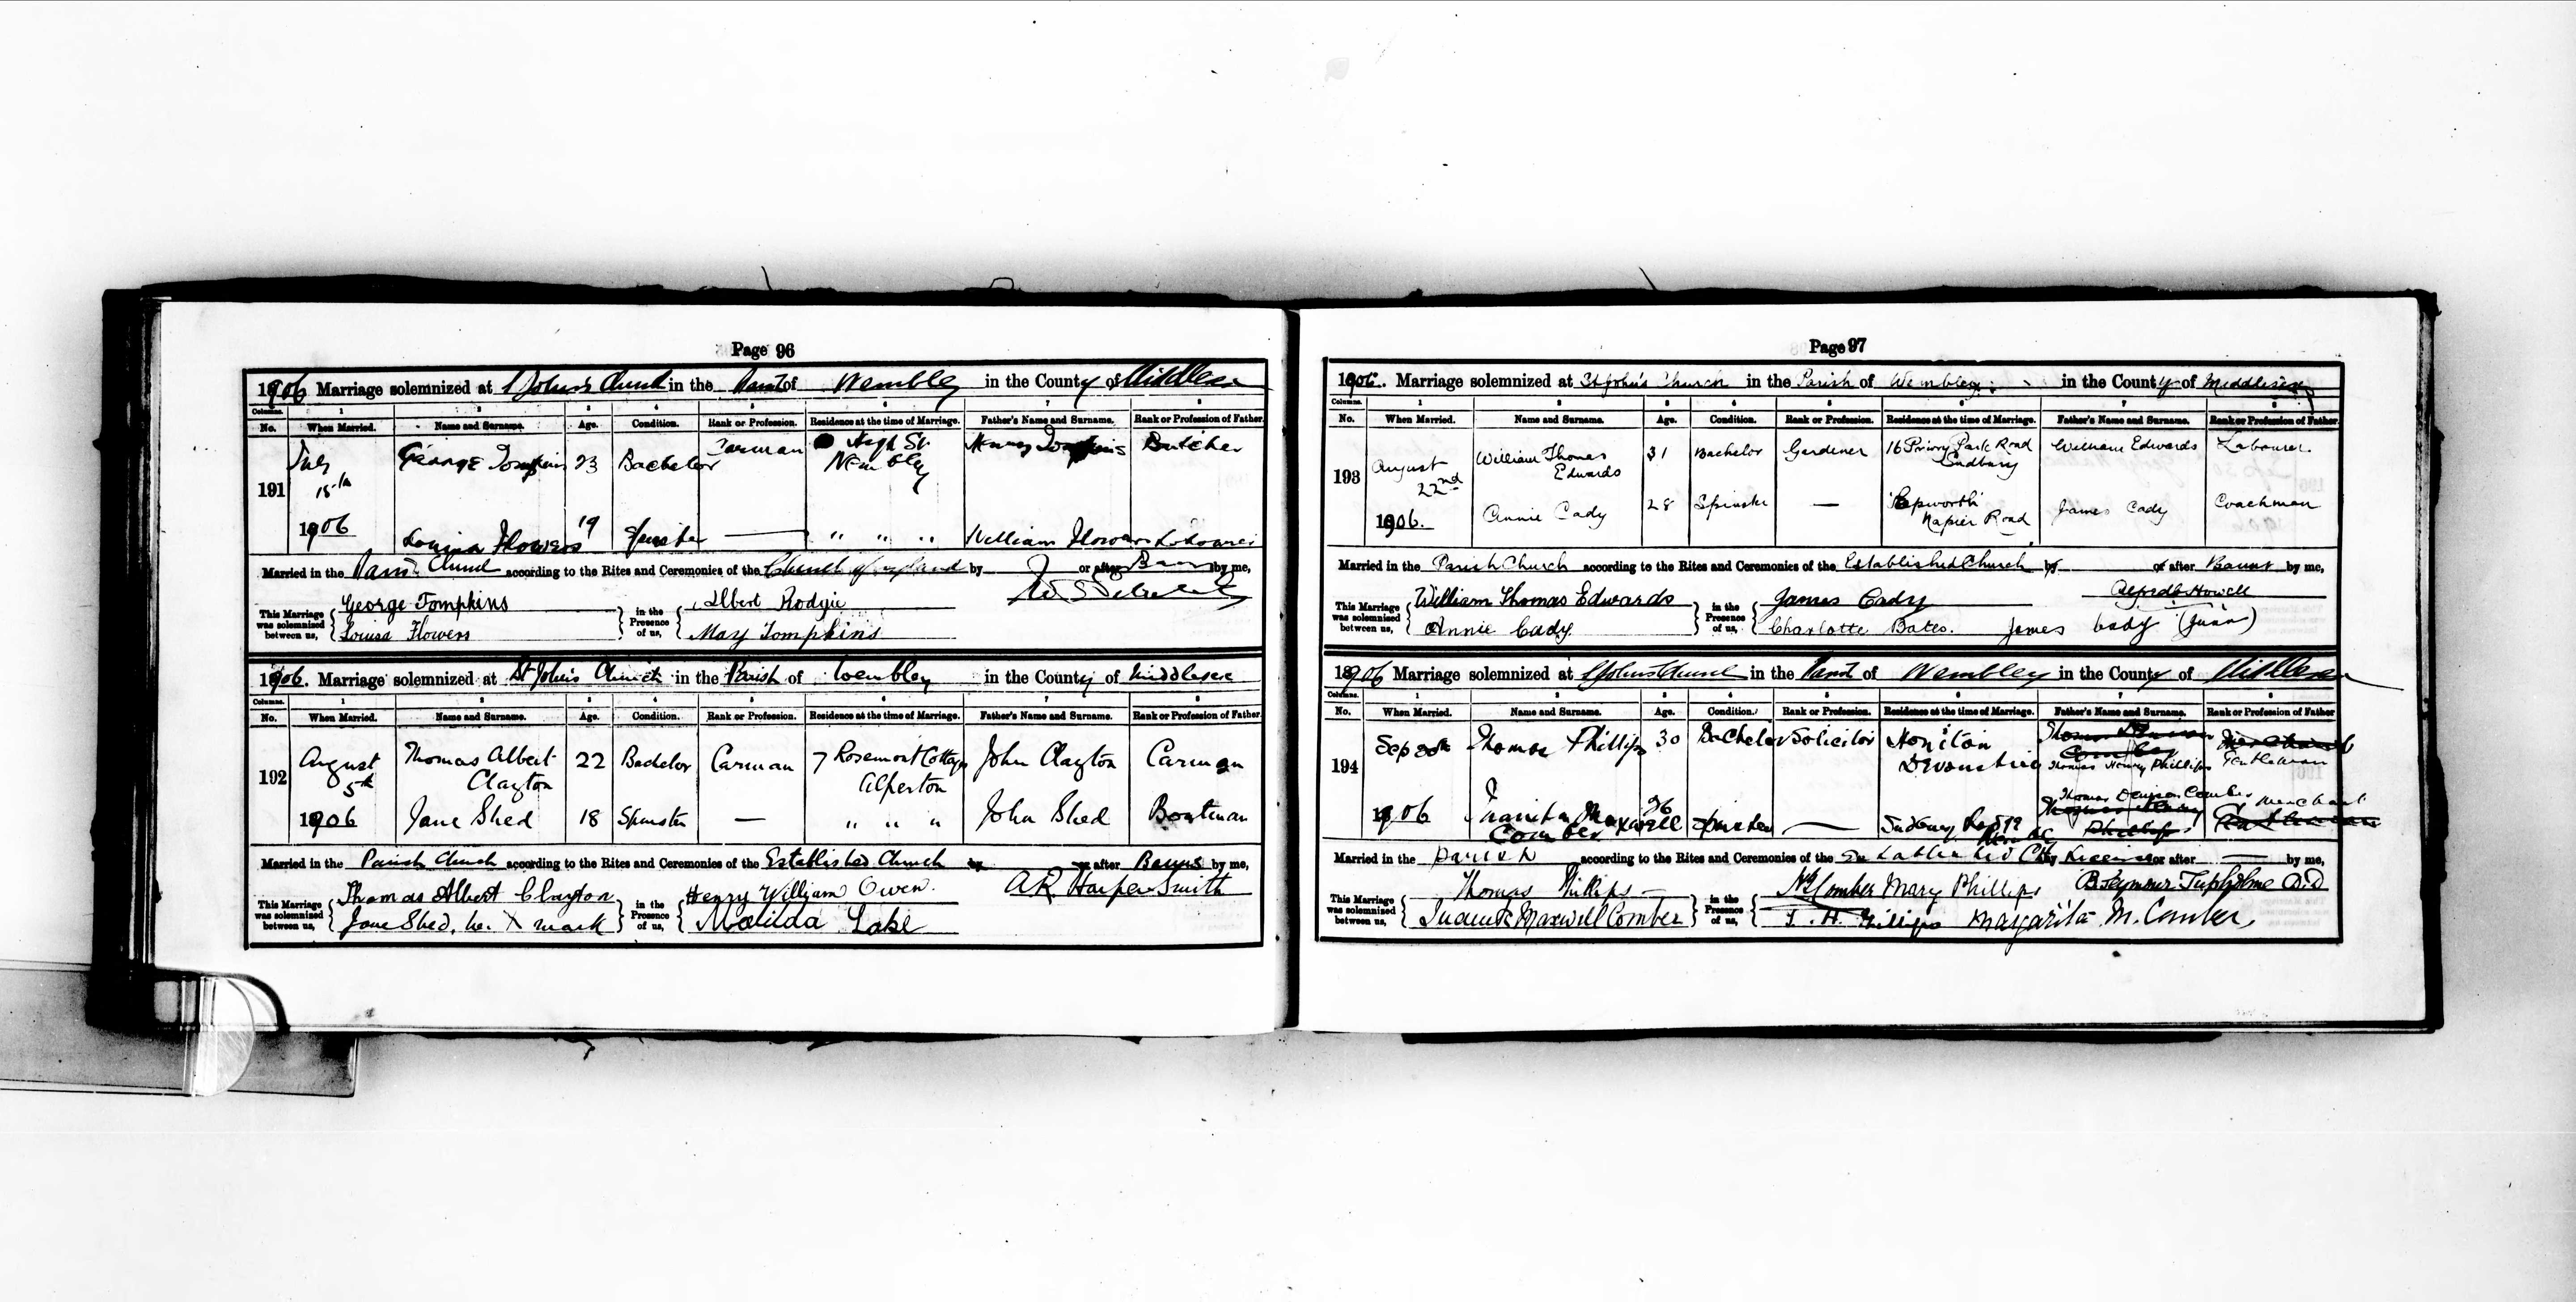 Page 96
1906 Marriage solemnized at St John's Church in the Parish of Wembley in the County of Middlesex
Columns. 1 2 3 4 5 6 7 8
No. When Married. Name and Surname. Age. Condition. Rank or Profession. Residence at the time of Marriage. Father's Name and Surname. Rank or Profession of Father.
191 July 15th 1906 George Tompkins 23 Bachelor Carman High St. Wembley Henry Tompkins Butcher
Louisa Flowers 19 Spinster — " " " William Flowers Labourer
Married in the Parish Church according to the Rites and Ceremonies of the Church of England by or after Banns by me,
This Marriage was solemnized between us, George Tompkins in the Presence of us, Albert
Louisa Flowers May Tompkins
1906. Marriage solemnized at St John's Church in the Parish of Wembley in the County of Middlesex
Columns. 1 2 3 4 5 6 7 8
No. When Married. Name and Surname. Age. Condition. Rank or Profession. Residence at the time of Marriage. Father's Name and Surname. Rank or Profession of Father.
192 August 5th 1906 Thomas Albert Clayton 22 Bachelor Carman 7 Rosemont Cottages Alperton John Clayton Carman
Jane Shed 18 Spinster — " " " John Shed Boatman
Married in the Parish Church according to the Rites and Ceremonies of the Established Church by or after Banns by me,
This Marriage was solemnized between us, Thomas Albert Clayton in the Presence of us, Henry William Owen. A R Harper Smith
Jane Shed, her X mark Matilda Lake
Page 97
1906. Marriage solemnized at St John's Church in the Parish of Wembley in the County of Middlesex
Columns. 1 2 3 4 5 6 7 8
No. When Married. Name and Surname. Age. Condition. Rank or Profession. Residence at the time of Marriage. Father's Name and Surname. Rank or Profession of Father.
193 August 22nd 1906. William Thomas Edwards 31 Bachelor Gardener 16 Priory Park Road Sudbury William Edwards Labourer.
Annie Cady 28 Spinster — 'Epworth' Napier Road James Cady Coachman
Married in the Parish Church according to the Rites and Ceremonies of the Established Church by or after Banns by me,
This Marriage was solemnized between us, William Thomas Edwards in the Presence of us, James Cady Howell
Annie Cady. Charlotte Bates. James Cady (Junr)
1906 Marriage solemnized at St John's Church in the Parish of Wembley in the County of Middlesex
Columns. 1 2 3 4 5 6 7 8
No. When Married. Name and Surname. Age. Condition. Rank or Profession. Residence at the time of Marriage. Father's Name and Surname. Rank or Profession of Father
194 Sep 20th 1906 Thomas Phillips 30 Bachelor Solicitor Honiton Devonshire Thomas Denison Comber Thomas Henry Phillips Merchant Gentleman
Maxwell Comber 26 Spinster — Sudbury Thomas Denison Comber Thomas Henry Phillips Merchant Gentleman
Married in the Parish according to the Rites and Ceremonies of the Established Ch by Licence or after — by me,
This Marriage was solemnized between us, Thomas Phillips in the Presence of us, Comber Mary Phillips B Seymour Tupholme B.D
Maxwell Comber T. H. Phillips Margarita M. Comber,